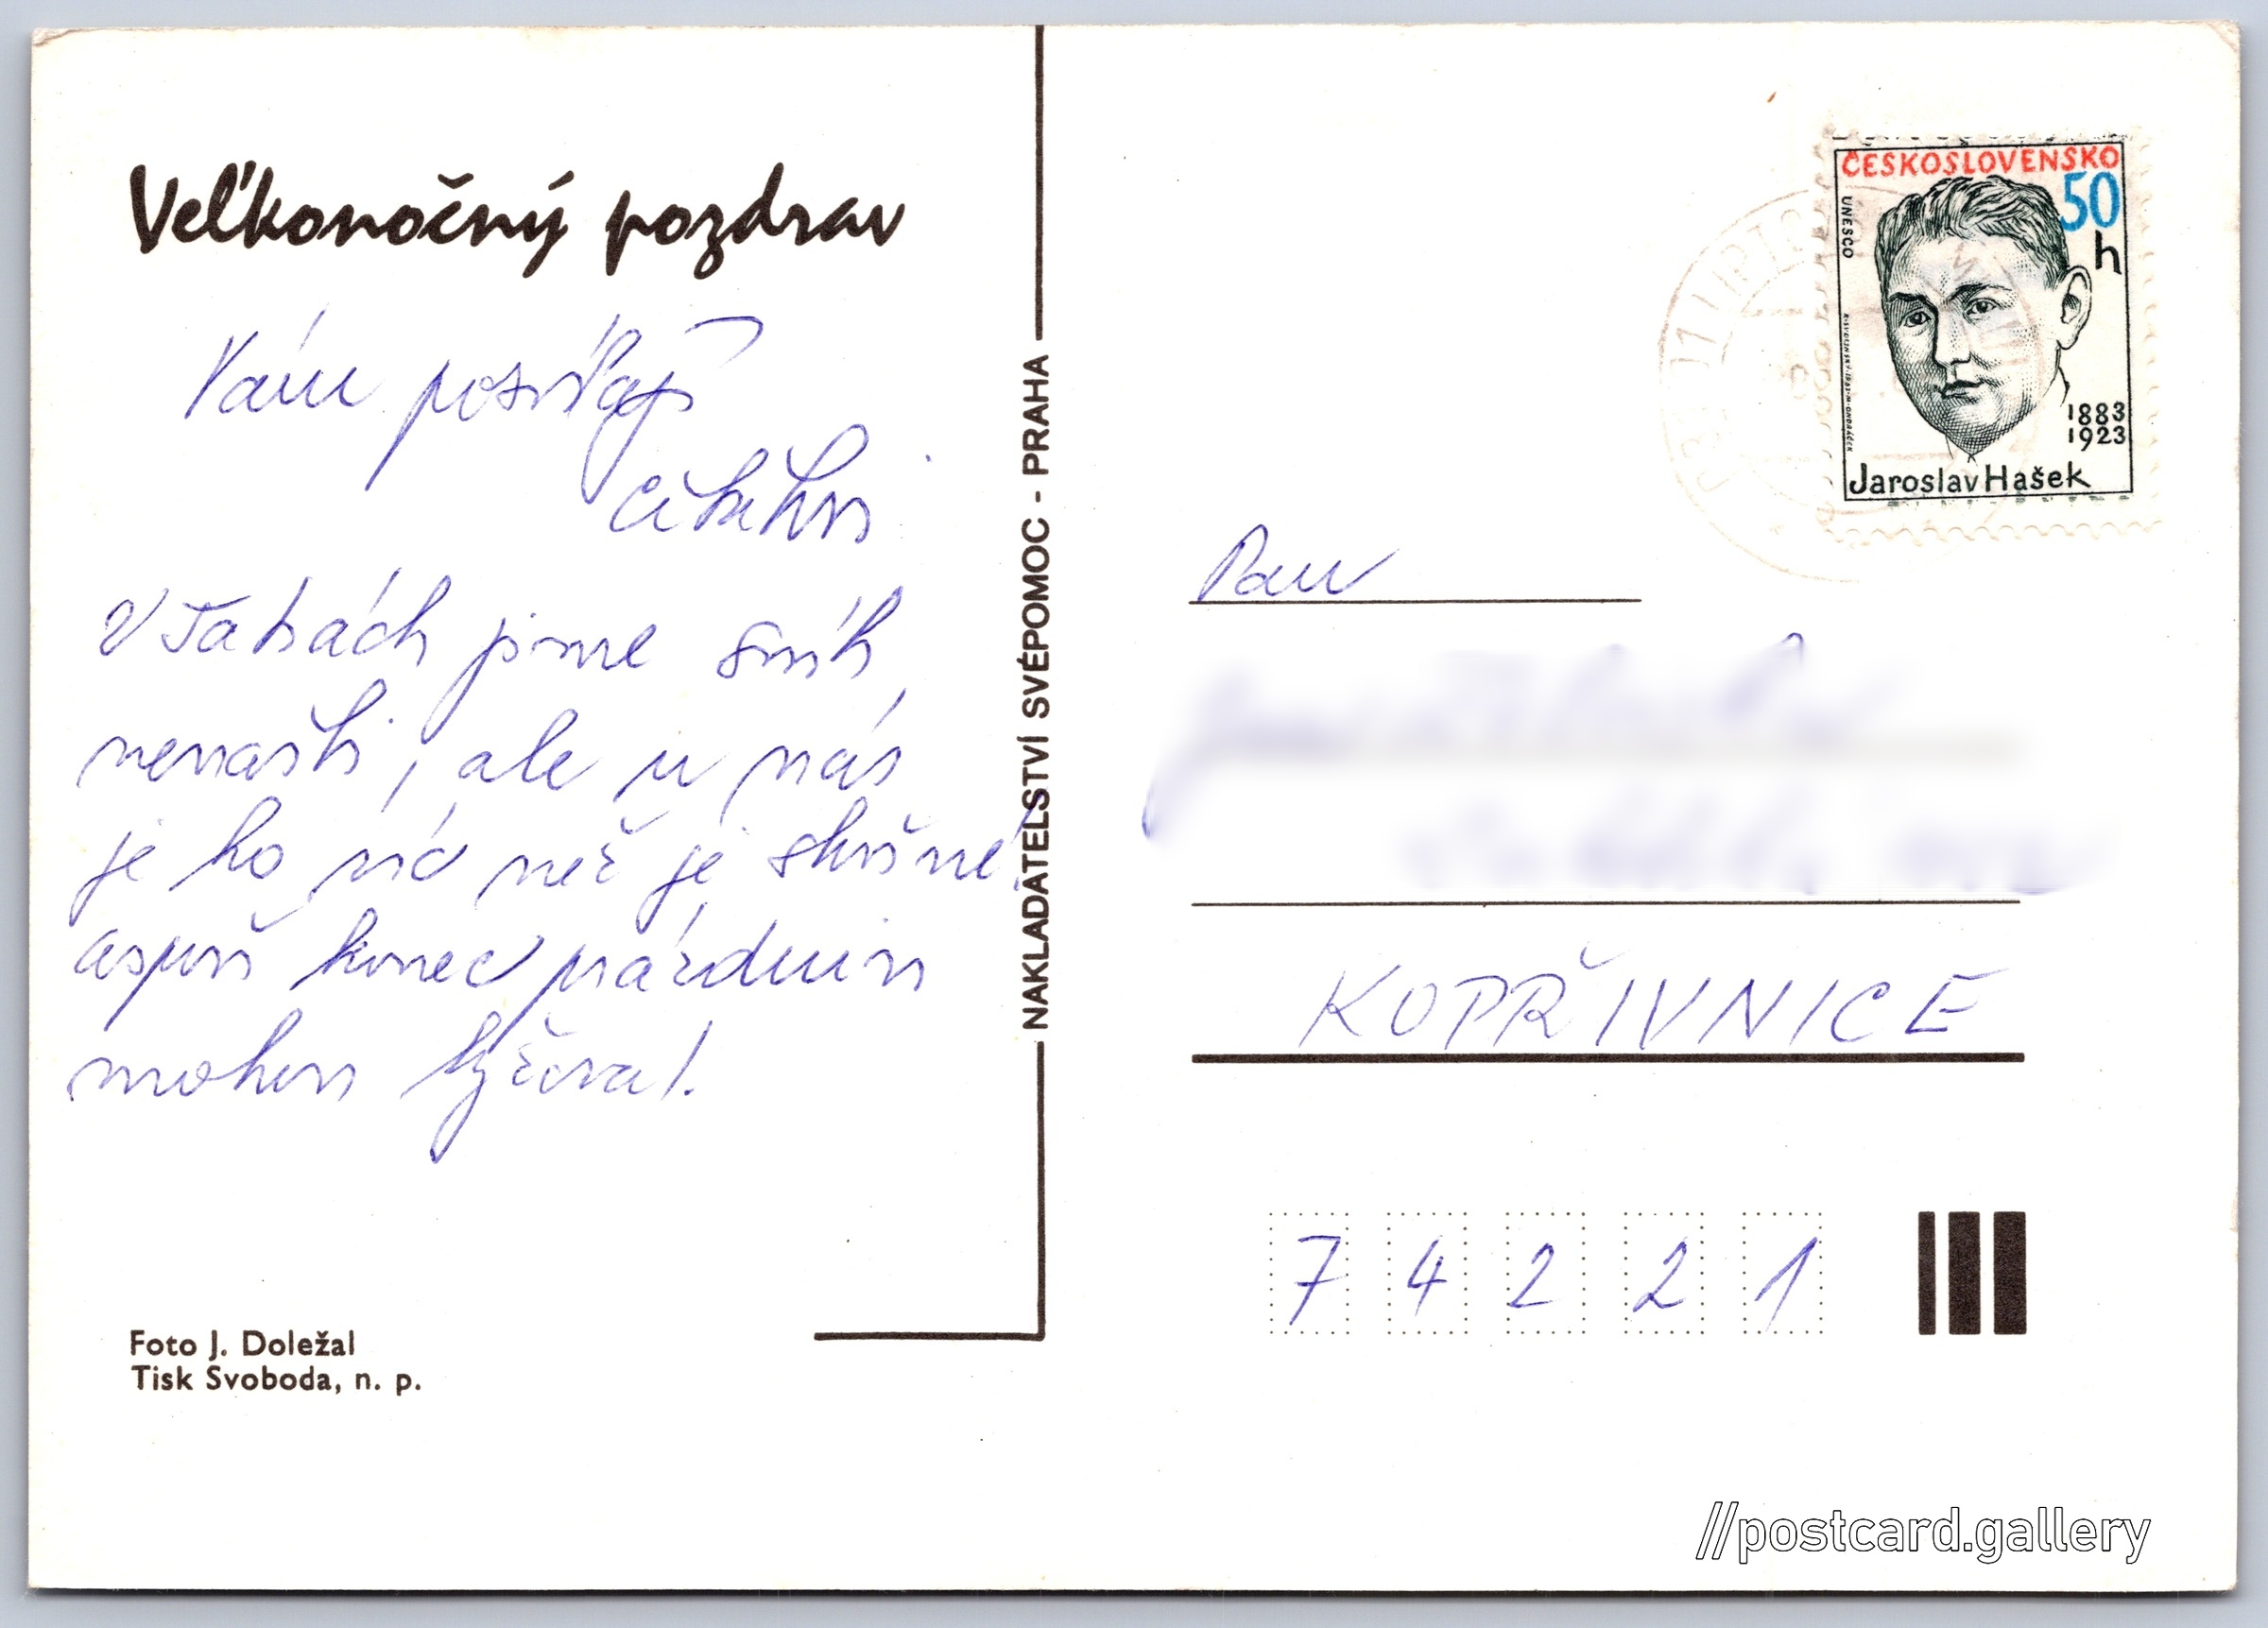 Veľkonočný pozdrav
Vám posílají
V Tatrách jsme sníh
nenašli, ale u nás
je ho víc než je slušné!
aspoň konec prázdnin
mohou lyžovat.
Foto J. Doležal
Tisk Svoboda, n. p.
NAKLADATELSTVÍ SVÉPOMOC - PRAHA
ČESKOSLOVENSKO
50
h
UNESCO
1883
1923
Jaroslav Hašek
Pan
KOPŘIVNICE
7 4 2 2 1
//postcard.gallery